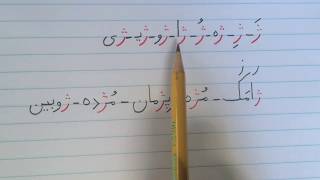 ژَ - ژِ - ژه - ژُ - ژا - ژو - ژیـ - ژی
ر ز
مُژه - پژمان - مُژده - ژوبین